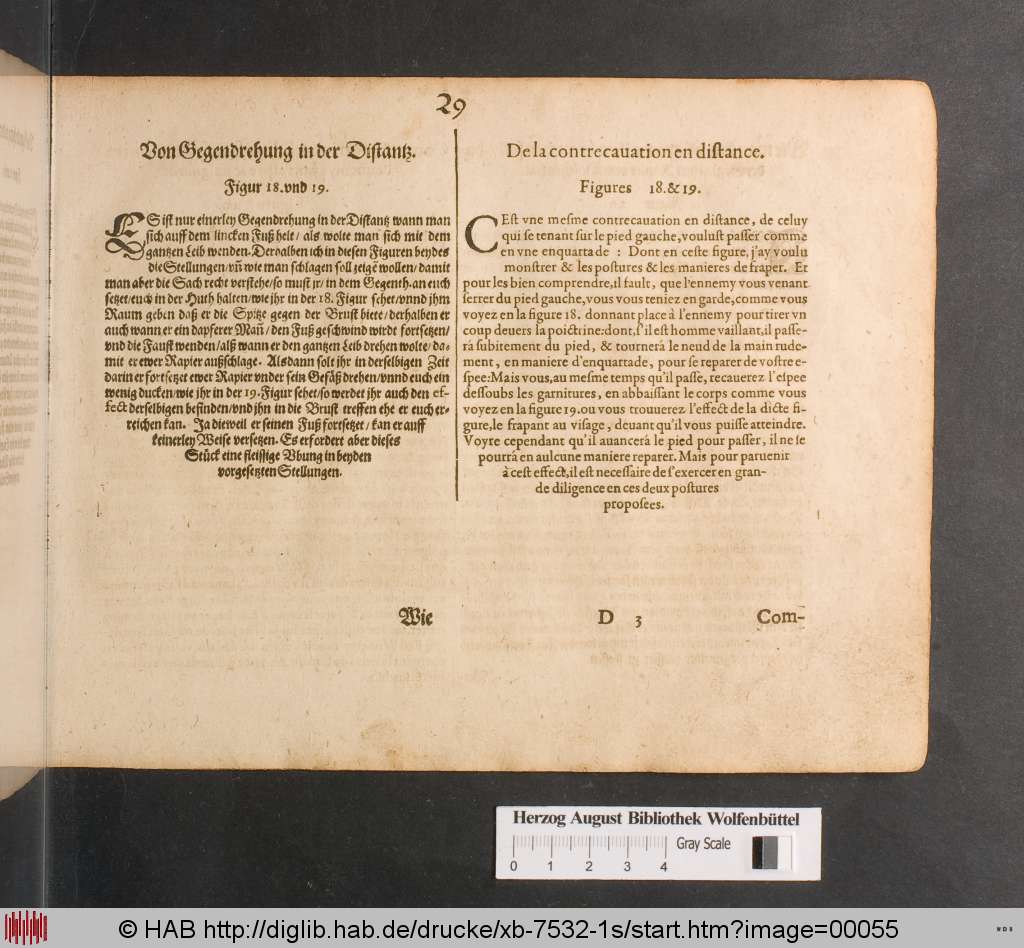 29
Von Gegendrehung in der Distantz.
Figur 18. vnd 19.
ES ist nur einerley Gegendrehung in der Distantz wann man
sich auff dem lincken Fuß helt / als wolte man sich mit dem
gantzen Leib wenden. Derhalben ich in diesen Figuren beydes
die Stellungen / vñ wie man schlagen soll zeigẽ wollen / damit
man aber die Sach recht verstehe / so must jr / in dem Gegenth. an euch
setzet / euch in der Huth halten / wie jhr in der 18. Figur sehet / vnnd jhm
Raum geben daß er die Spitze gegen der Brust biete / derhalben er
auch wann er ein dapferer Mañ / den Fuß geschwind wirdt fortsetzen /
vnd die Faust wenden / alß wann er den gantzen Leib drehen wolte / da-
mit er ewer Rapier außschlage. Alsdann solt jhr in derselbigen Zeit
darin er fortsetzet ewer Rapier vnder sein Gefäß drehen / vnnd euch ein
wenig ducken / wie jhr in der 19. Figur sehet / so werdet jhr auch den ef-
fect derselbigen befinden / vnd jhn in die Brust treffen ehe er euch er-
reichen kan. Ja dieweil er seinen Fuß fortsetzet / kan er auff
keinerley Weise versetzen. Es erfordert aber dieses
Stück eine fleissige Vbung in beyden
vorgesetzten Stellungen.
Wie
De la contrecauation en distance.
Figures 18. & 19.
CEst vne mesme contrecauation en distance, de celuy
qui se tenant sur le pied gauche, voulust passer comme
en vne enquartade : Dont en ceste figure, j'ay voulu
monstrer & les postures & les manieres de fraper. Et
pour les bien comprendre, il fault, que l'ennemy vous venant
serrer du pied gauche, vous vous teniez en garde, comme vous
voyez en la figure 18. donnant place à l'ennemy pour tirer vn
coup deuers la poictrine: dont, s'il est homme vaillant, il passe-
rá subitement du pied, & tournerá le neud de la main rude-
ment, en maniere d'enquartade, pour se reparer de vostre e-
spee: Mais vous, au mesme temps qu'il passe, recauerez l'espee
dessoubs les garnitures, en abbaissant le corps comme vous
voyez en la figure 19. ou vous trouuerez l'effect de la dicte fi-
gure, le frapant au visage, deuant qu'il vous puisse atteindre.
Voyre cependant qu'il auancerá le pied pour passer, il ne se
pourrá en aulcune maniere reparer. Mais pour paruenir
à cest effect, il est necessaire de s'exercer en gran-
de diligence en ces deux postures
proposees.
D 3
Com-
Herzog August Bibliothek Wolfenbüttel
Gray Scale
0 1 2 3 4
© HAB http://diglib.hab.de/drucke/xb-7532-1s/start.htm?image=00055